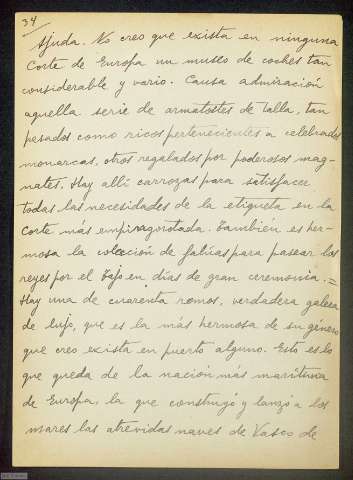 34
Ajuda. No creo que exista en ninguna
Corte de Europa un museo de coches tan
considerable y vario. Causa admiración
aquella serie de armatostes de talla, tan
pesados como ricos pertenecientes a celebrados
monarcas, otros regalados por poderosos mag-
nates. Hay allí carrozas para satisfacer
todas las necesidades de la etiqueta en la
Corte más empingorotada. También es her-
mosa la colección de falúas para pasear los
reyes por el Tajo en días de gran ceremonia. =
Hay una de cuarenta remos, verdadera galera
de lujo, que es la más hermosa de su género
que creo exista en puerto alguno. Esto es lo
que queda de la nación más marítima
de Europa, la que construyó y lanzó a los
mares las atrevidas naves de Vasco de